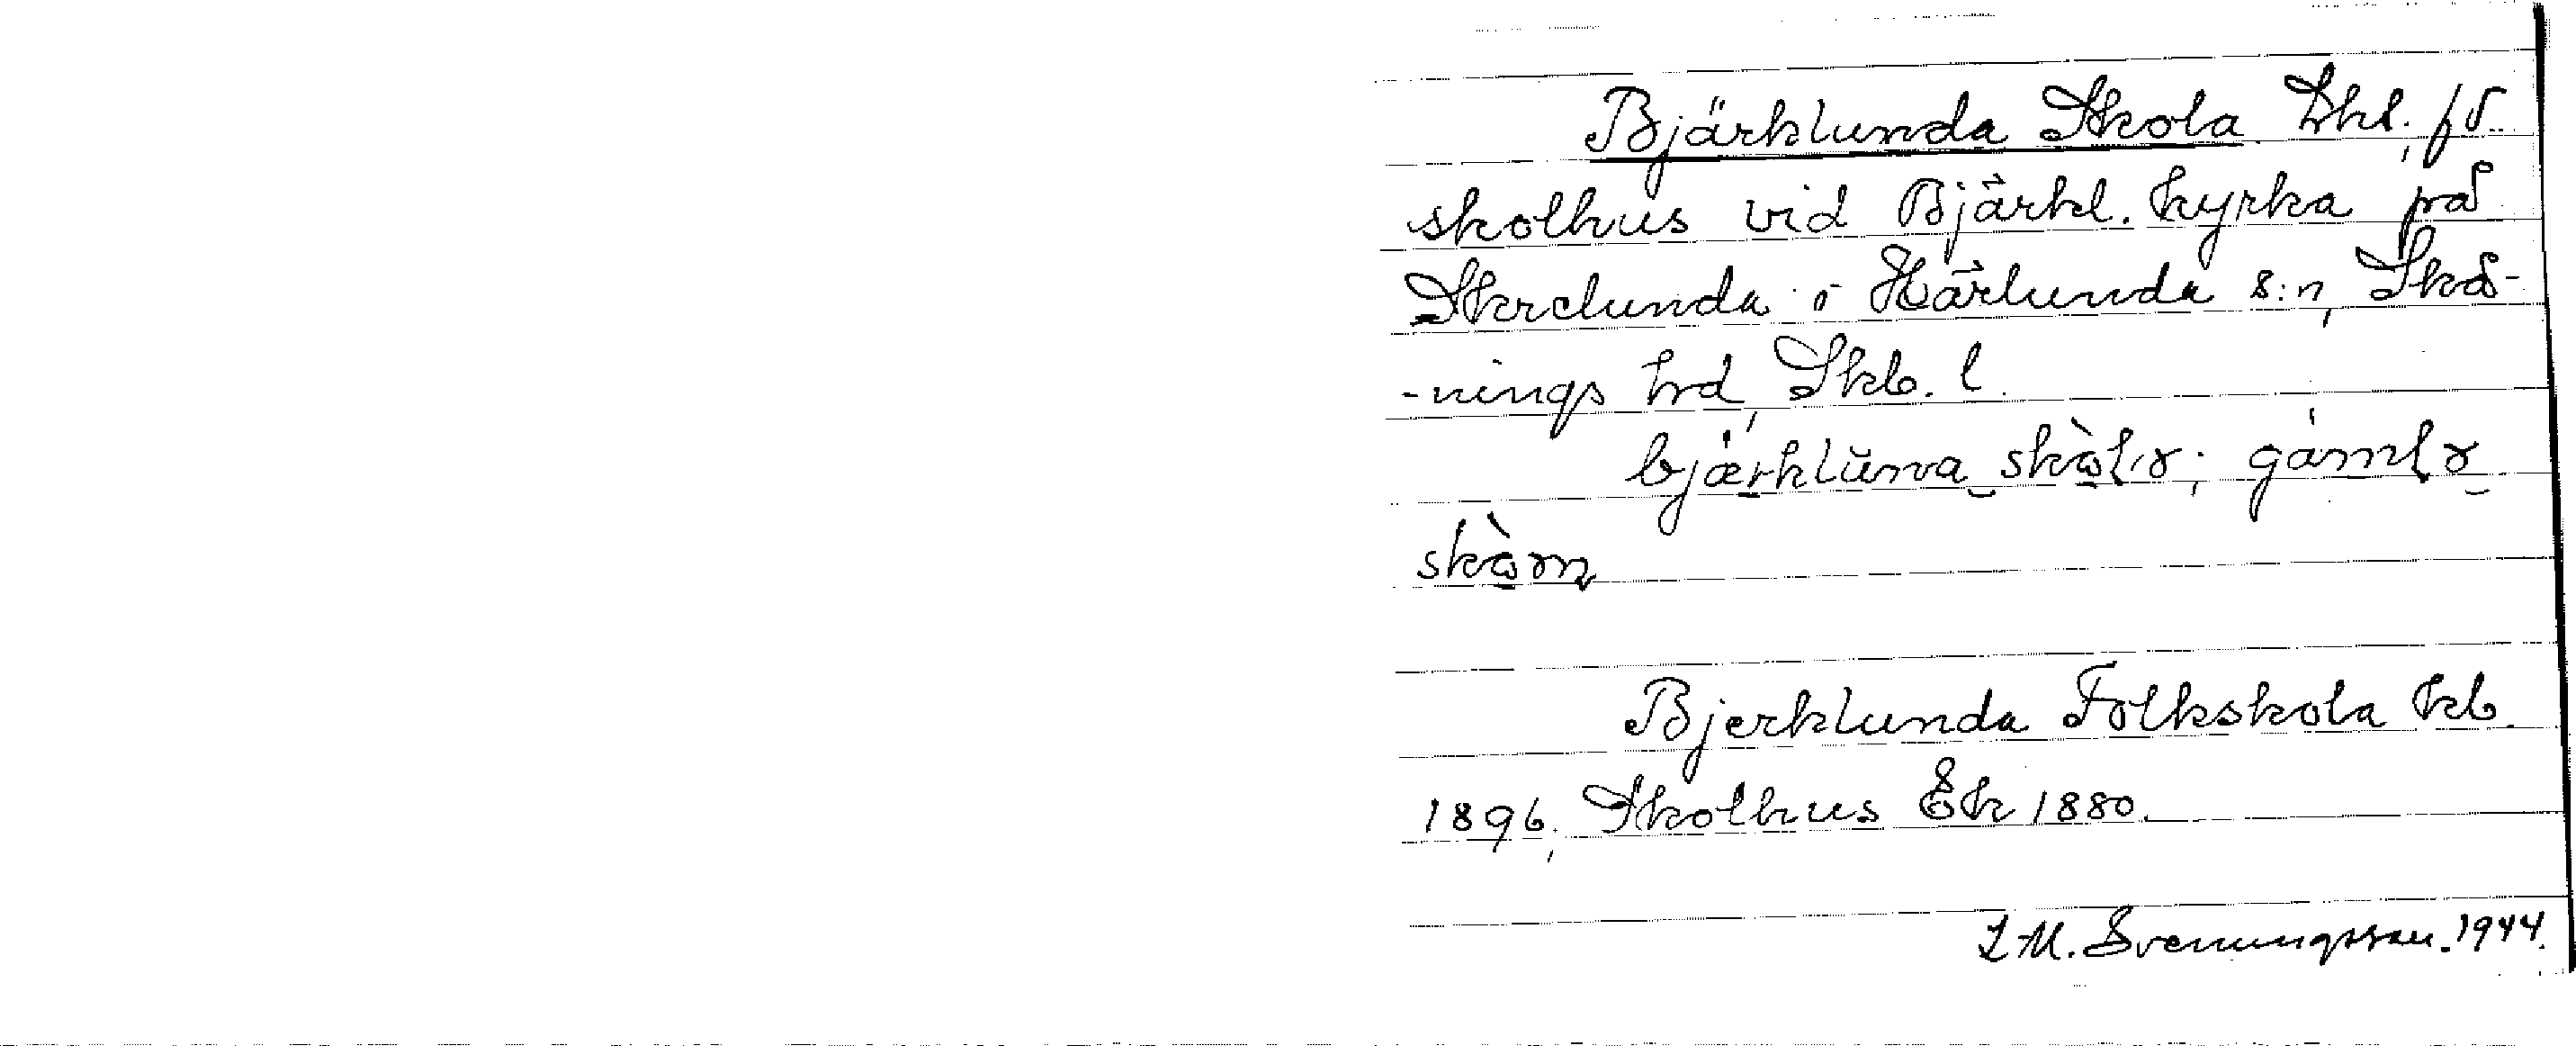 Bjärklunda Skola Lhl; f.d.
skolhus vid Bjärkl. kyrka på
Skrelunda i Härlunda s:n, Skå-
-nings hd, Skb. l.
bjærkluna skolα; gámlα
skòln
Bjerklunda Folkskola kb
1896; Skolhus Ek 1880.
L M. Svenungsson. 1944.